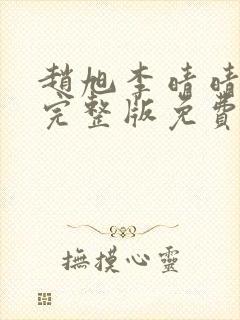 趙旭李晴晴
完整版免費
撫摸心靈